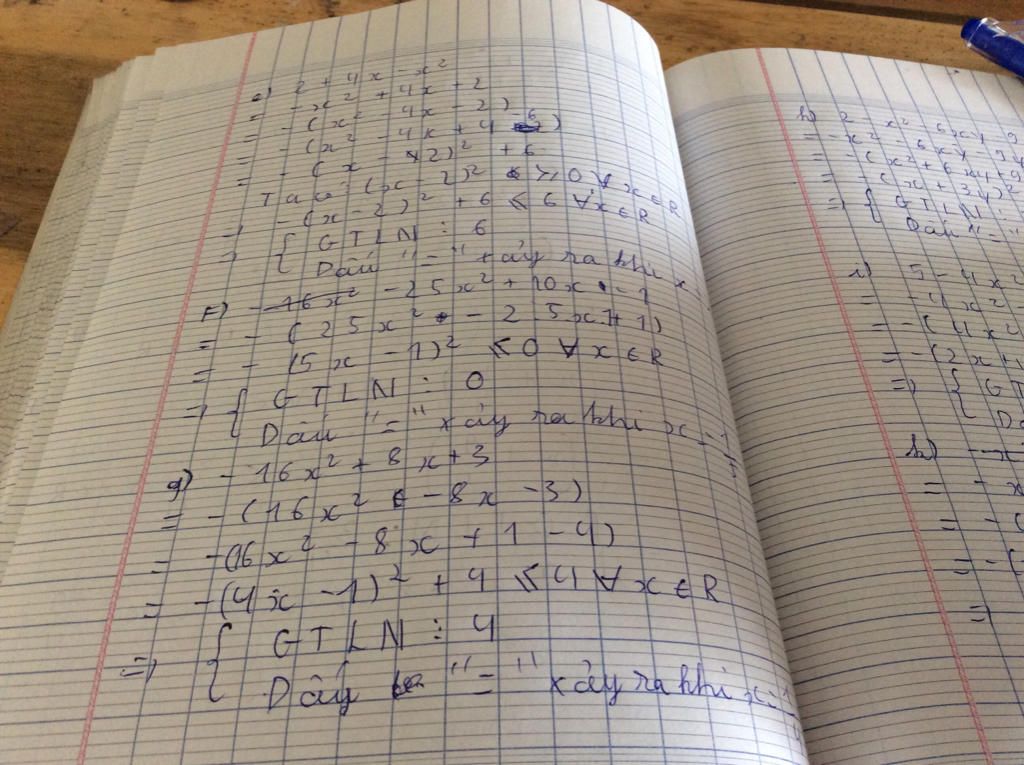 e) 2 + 4x - x²
= -x² + 4x + 2
= -(x² - 4x - 2)
= -(x² - 4x + 4 - 6)
= -(x - 2)² + 6
Ta có: (x - 2)² ⩾ 0 ∀ x ∈ R
⇒ -(x - 2)² + 6 ⩽ 6 ∀ x ∈ R
⇒ { GTLN : 6
Dấu "=" xảy ra khi x
f) -25x² + 10x - 1
= -(25x² - 2.5x.1 + 1)
= -(5x - 1)² ⩽ 0 ∀ x ∈ R
⇒ { GTLN : 0
Dấu "=" xảy ra khi x = 1/5
g) -16x² + 8x + 3
= -(16x² - 8x - 3)
= -(16x² - 8x + 1 - 4)
= -(4x - 1)² + 4 ⩽ 4 ∀ x ∈ R
⇒ { GTLN : 4
Dấu "=" xảy ra khi x = 1
h) 2 - x² - 6xy - 9y
= -x² - 6xy - 9y
= -(x² + 6xy + 9
= -(x + 3y)²
⇒ { GTLN :
Dấu "="
i) 5 - 4x²
= -4x²
= -(4x²
= -(2x +
⇒ { GT
Dấ
k) -x
= -x
= -(
= -(
⇒